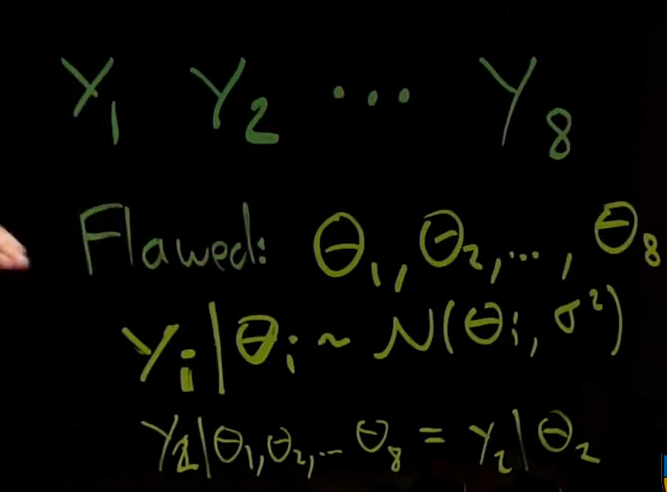 Y₁ Y₂ ... Y₈
Flawed: θ₁, θ₂, ..., θ₈
Yᵢ|θᵢ ~ N(θᵢ, σ²)
Y₂|θ₁,θ₂,... θ₈ = Y₂|θ₂